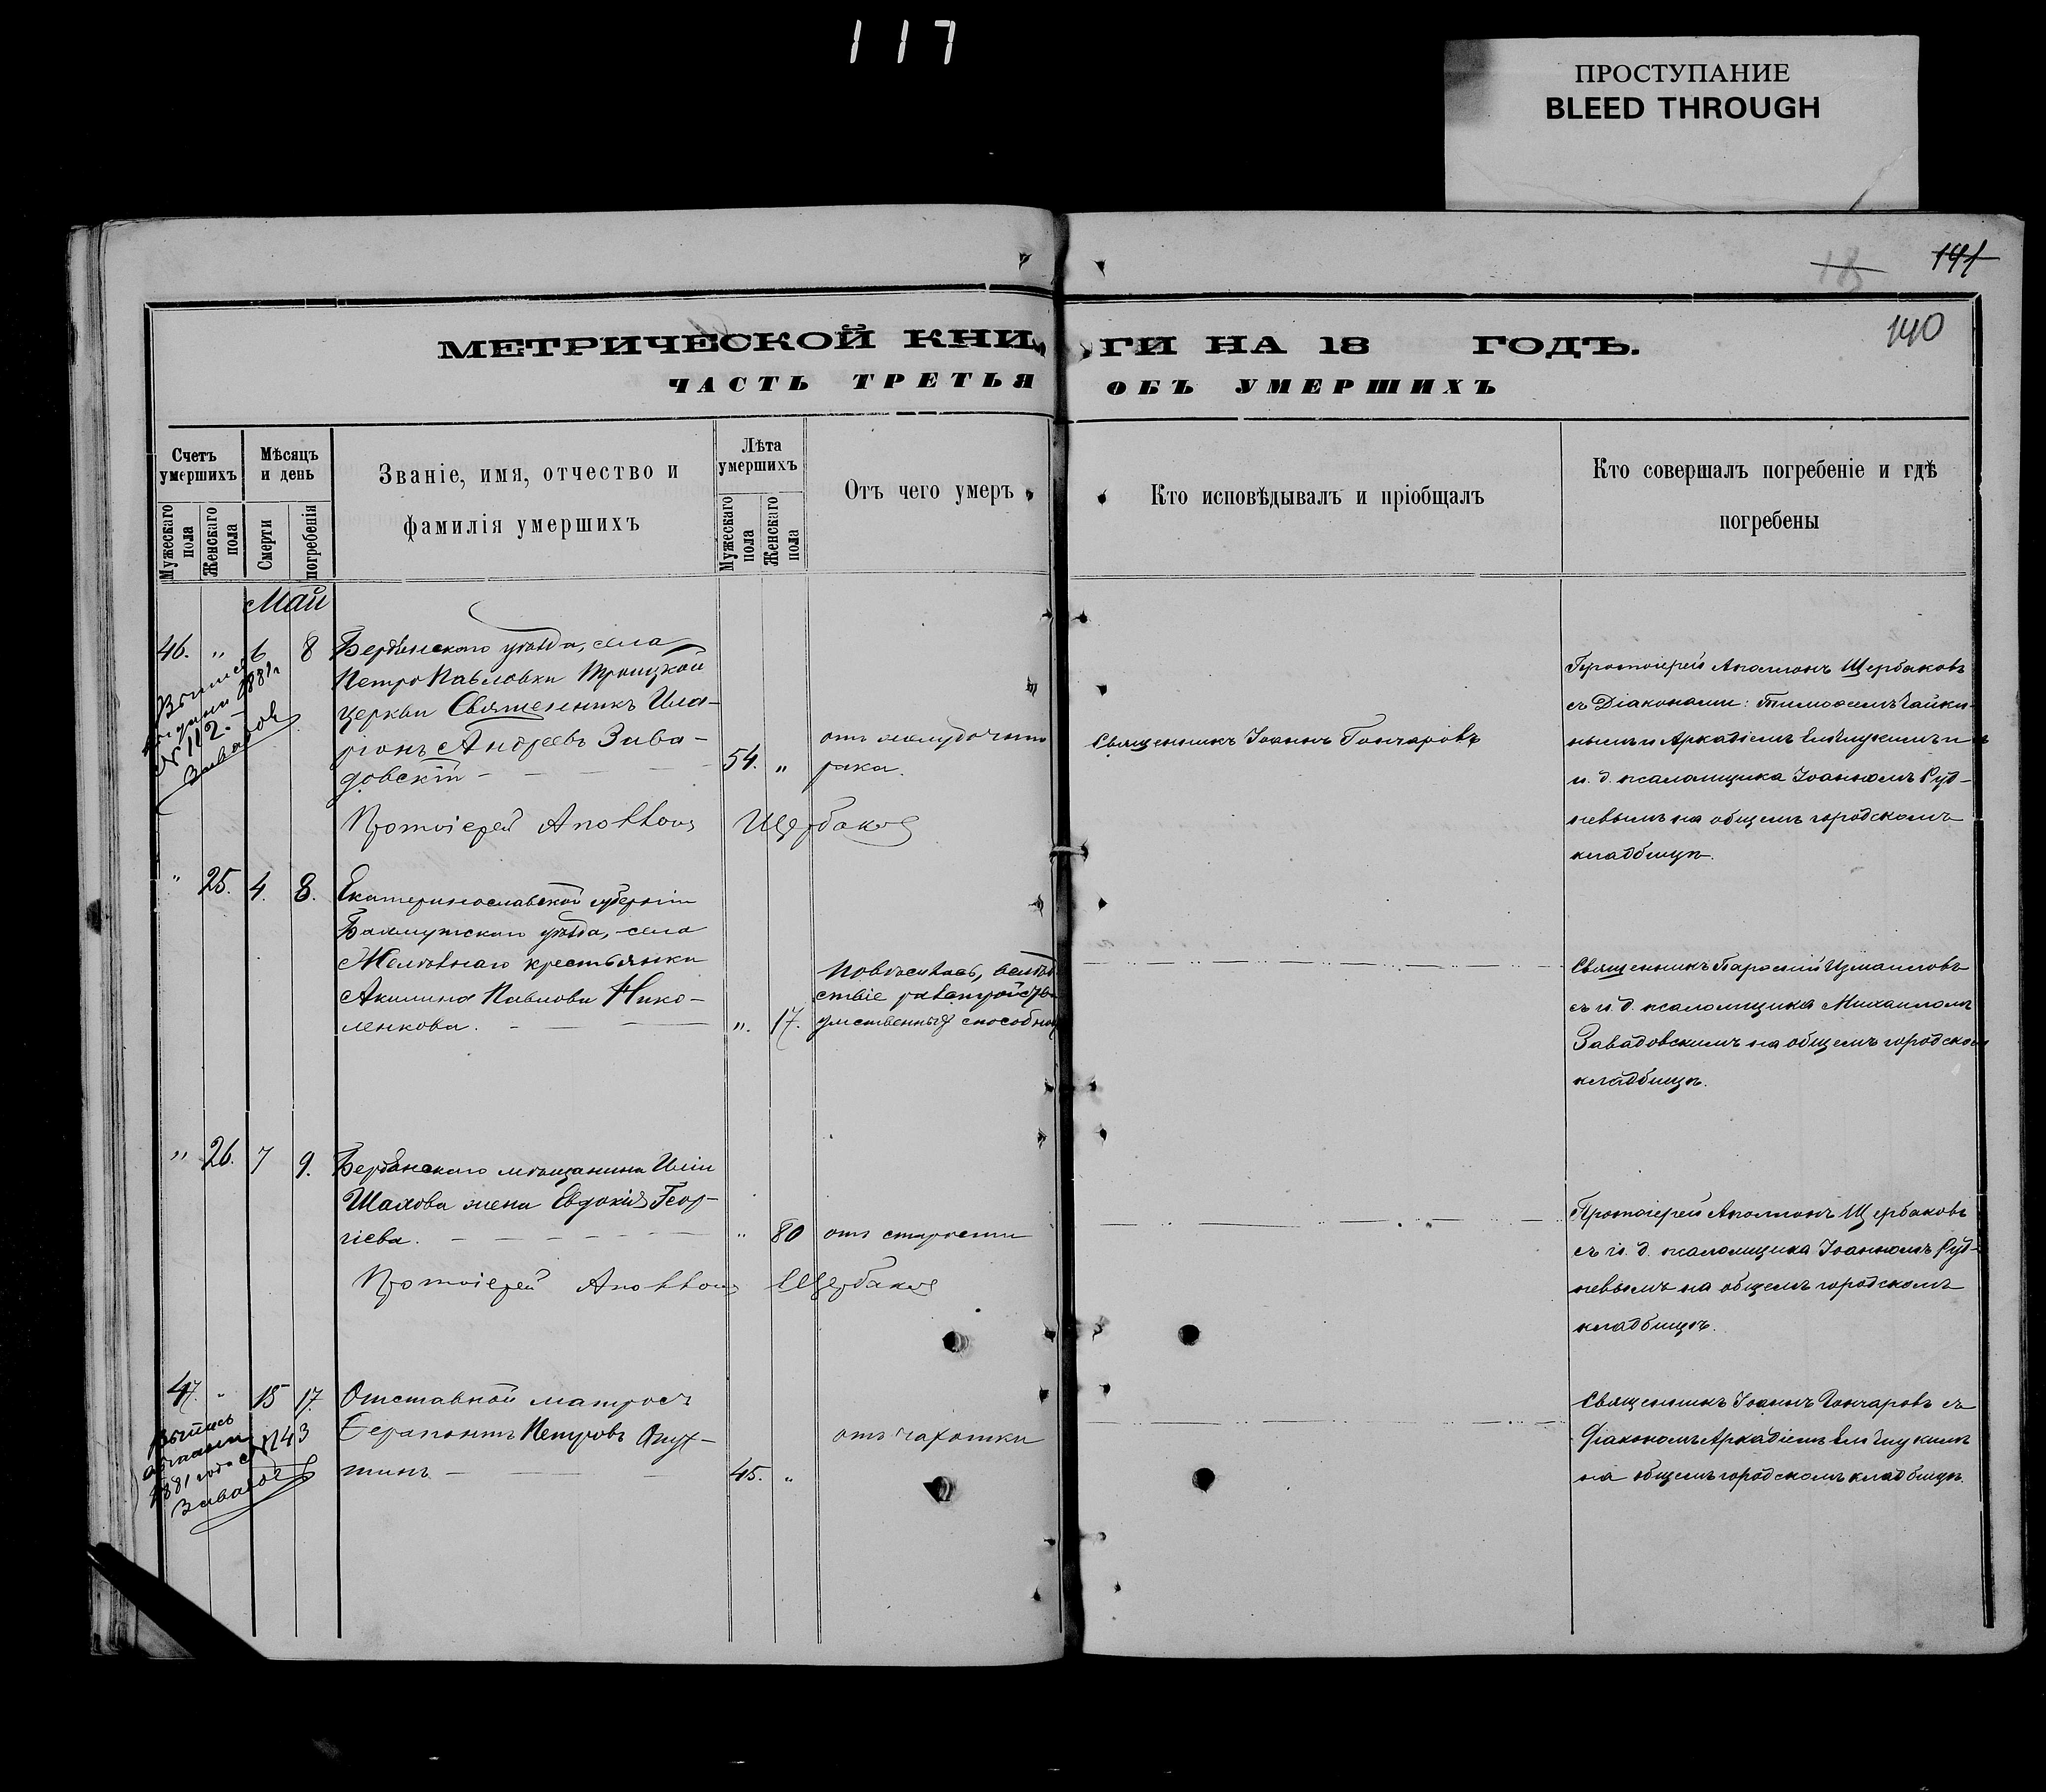 117
ПРОСТУПАНИЕ
BLEED THROUGH
18
141
140
МЕТРИЧЕСКОЙ КНИГИ НА 18 ГОДЪ.
ЧАСТЬ ТРЕТЬЯ ОБЪ УМЕРШИХЪ
Счетъ умершихъ
Мужескаго пола
Женскаго пола
Мѣсяцъ и день
Смерти
погребенія
Званіе, имя, отчество и
фамилія умершихъ
Лѣта умершихъ
Мужескаго пола
Женскаго пола
Отъ чего умеръ
Кто исповѣдывалъ и пріобщалъ
Кто совершалъ погребеніе и гдѣ
погребены
Май
46. " 6 8
Бердянскаго уѣзда, села
Петро Павловки Троицкой
церкви Священникъ Ила-
ріонъ Андреевъ Зава-
довскій
54. "
отъ желудочнаго
рака.
Священникъ Іоаннъ Гончаровъ
Протоіерей Аполлонъ Щербаковъ
съ Діаконами: Тимоѳеемъ Чайки-
нымъ и Аркадіемъ
и. д. псаломщика Іоанномъ Руд-
невымъ на общемъ городскомъ
кладбищѣ.
1881г
№ 112.
Завадов
Протоіерей Аполлонъ Щербаков
" 25. 4. 8.
Екатеринославской губерніи
Бахмутскаго уѣзда, села
Желѣзнаго крестьянка
Акилина Павлова Нико-
ленкова.
". 17.
повѣсилась, вслѣд
ствіе разстройства
умственныхъ способнос
Священникъ Тарасій Измаиловъ
съ и. д. псаломщика Михаиломъ
Завадовскимъ на общемъ городском
кладбищѣ.
" 26. 7 9.
Бердянскаго мѣщанина Иліи
Шахова жена Евдокія Геор-
гіева.
" 80
отъ старости
Протоіерей Аполлонъ Щербаковъ
съ и. д. псаломщика Іоанномъ Руд-
невымъ на общемъ городскомъ
кладбищѣ.
Протоіерей Аполлонъ Щербаков
47. " 15 17.
Отставной матросъ
Ѳерапонтъ Петровъ
тинъ
45. "
отъ чахотки
Священникъ Іоаннъ Гончаровъ съ
Діакономъ Аркадіемъ
на общемъ городскомъ кладбищѣ.
Выпись
1881 года № 143
Завадов